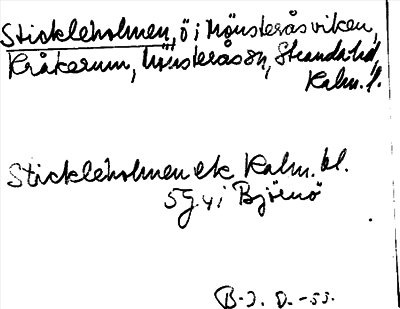 Stickleholmen, ö i Mönsteråsviken,
Kråkerum, Mönsterås sn, Stranda hd,
Kalm. l.
Stickleholmen ek Kalm. bl.
5g y i Björnö
B-J. D. -53.